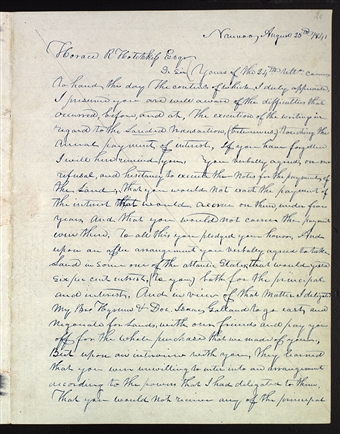 Nauvoo, August 25th 1841
Horace R Hotchkiss Esqr
D. Sir Yours of the 24th Ult came
to hand, this day (the contents of which I duly appreciate,
I presume you are well aware of the difficulties that
occured, before, and at, the execution of the writings in
regard to the Landed transaction, (between us) touching the
annual payment of interest, If you have forgotten
I will here remind you, You verbally agreed, on our
refusal, and hesitancy to execute the Notes for the payments of
the Land, that you would not exact the payment of
the interest that would accrue on them, under five
years and that you would not coerce the payment
even then. To all this you pledged your honor, And
upon an after arrangement you verbally agreed to take
Land in some one of the atlantic States, that would yield
six per cent interest, (to you) both for the principal
and interest, And in view of that Matter, I delegated
My Bro Hyrum & Doc. Isaac Galland to go east, and
negociate for Lands, with our friends and pay you
off for the whole purchase that we made of you,
But upon an interview with you, They learned
that you were unwilling to enter into an arrangement
according to the powers that I had delegated to them,
That you would not receive any of the principal